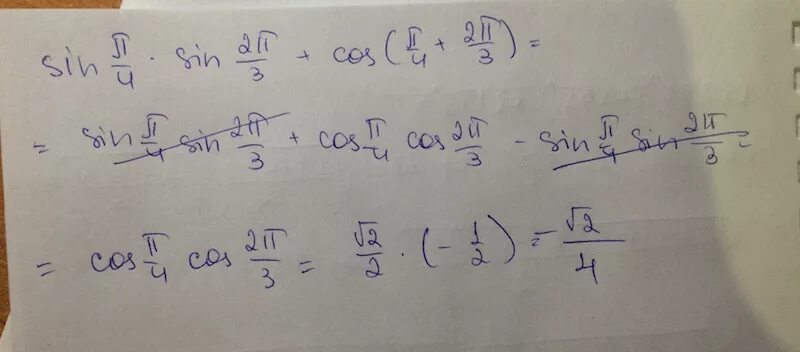 sin π/4 · sin 2π/3 + cos(π/4 + 2π/3) =
= sin π/4 sin 2π/3 + cos π/4 cos 2π/3 - sin π/4 sin 2π/3 =
= cos π/4 cos 2π/3 = √2/2 · (-1/2) = -√2/4